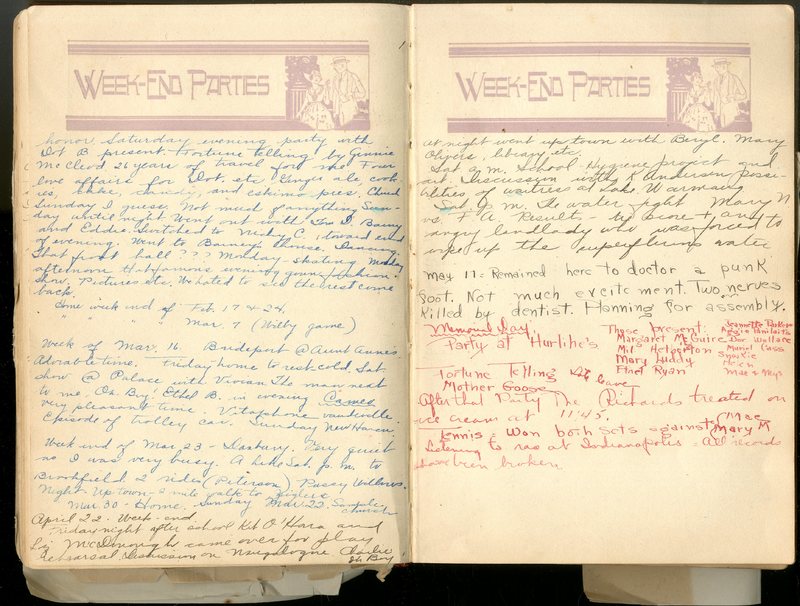 WEEK-END PARTIES
honor. Saturday evening party with
Dot B present. Fortune telling by Ginnie
McCleod 26 years of travel for me. Four
love affairs for Dot, etc Ginger ale cook-
ies cake candy and eskimo pies. Church
Sunday I guess. Not much of anything Sun-
day until night. Went out with Barney
and Eddie. Switched to Nicky C. toward end
of evening. Went to Barney's House. Dancing.
That front hall ??? Monday-skating Monday
afternoon evening gown fashion
show. Pictures etc. We hated to see the rest come
back.
Home week end of Feb. 17 & 24.
" " " " Mar. 7 (Wilby game)
Week of Mar. 16. Bridgeport @ Aunt Annie's
Adorable time. Friday home to rest cold. Sat.
show @ Palace with Vivian The man next
to me, Oh Boy! Ethel B. in evening Games
very pleasant time. Vitaphone vaudeville.
Episode of trolley car. Sunday New Haven
Week end of Mar 23 - Danbury. Very quiet
as I was very busy. A hike Sat. p.m. to
Brookfield 2 rides (Peterson) Pussy Willows.
Night - Up town - 2 mile walk to
Mar. 30 - Home. Sunday Mar 22
Church
April 22 - Week-end
Friday night after school Kit O'Hara and
McDonough came over for play
rehearsal. Discussion on
Oh Boy
WEEK-END PARTIES
at night went up town with Beryl. Mary
Olivers, library, etc
Sat a.m. School Hygiene project and
at Discussion with K Anderson possi-
bilities of waitress at Lake Waramaug
Sat. p.m. The water fight Mary N
vs. F. A. Results - and
angry landlady who was forced to
wipe up the superfluous water
May 17 - Remained here to doctor a punk
foot. Not much excitement. Two nerves
killed by dentist. Planning for assembly.
Memorial Day.
Party at Hurlihe's
Those present: Jeannette
Margaret McGuire Dor Wallace
Mil Helgerton Muriel Cass
Mary Luddy
Ethel Ryan Helen
Mae & Mys
Fortune Telling
Mother Goose
After that Party The Richards treated on
ice cream at 11:45.
Tennis - Won both sets against Mary M
Mae
Listening to race at Indianapolis - All records
have been broken